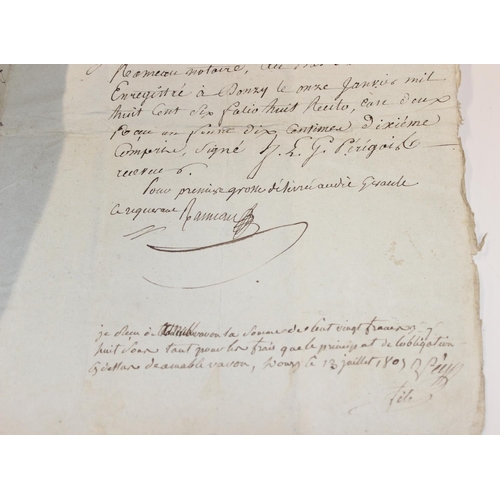 Rameau notaire, au
Enregistré à Donzy le onze Janvier mil
huit cent dix folio huit Recto, case deux
Reçu un franc dix centimes dixième
Compris, signé J. L. G.
receveur
Pour première grosse délivrée audit
ce requerant Rameau
je la somme de Cent vingt francs
huit sous tant pour les frais que le principal de lobligation
de amable vavon, 12 juillet
fils